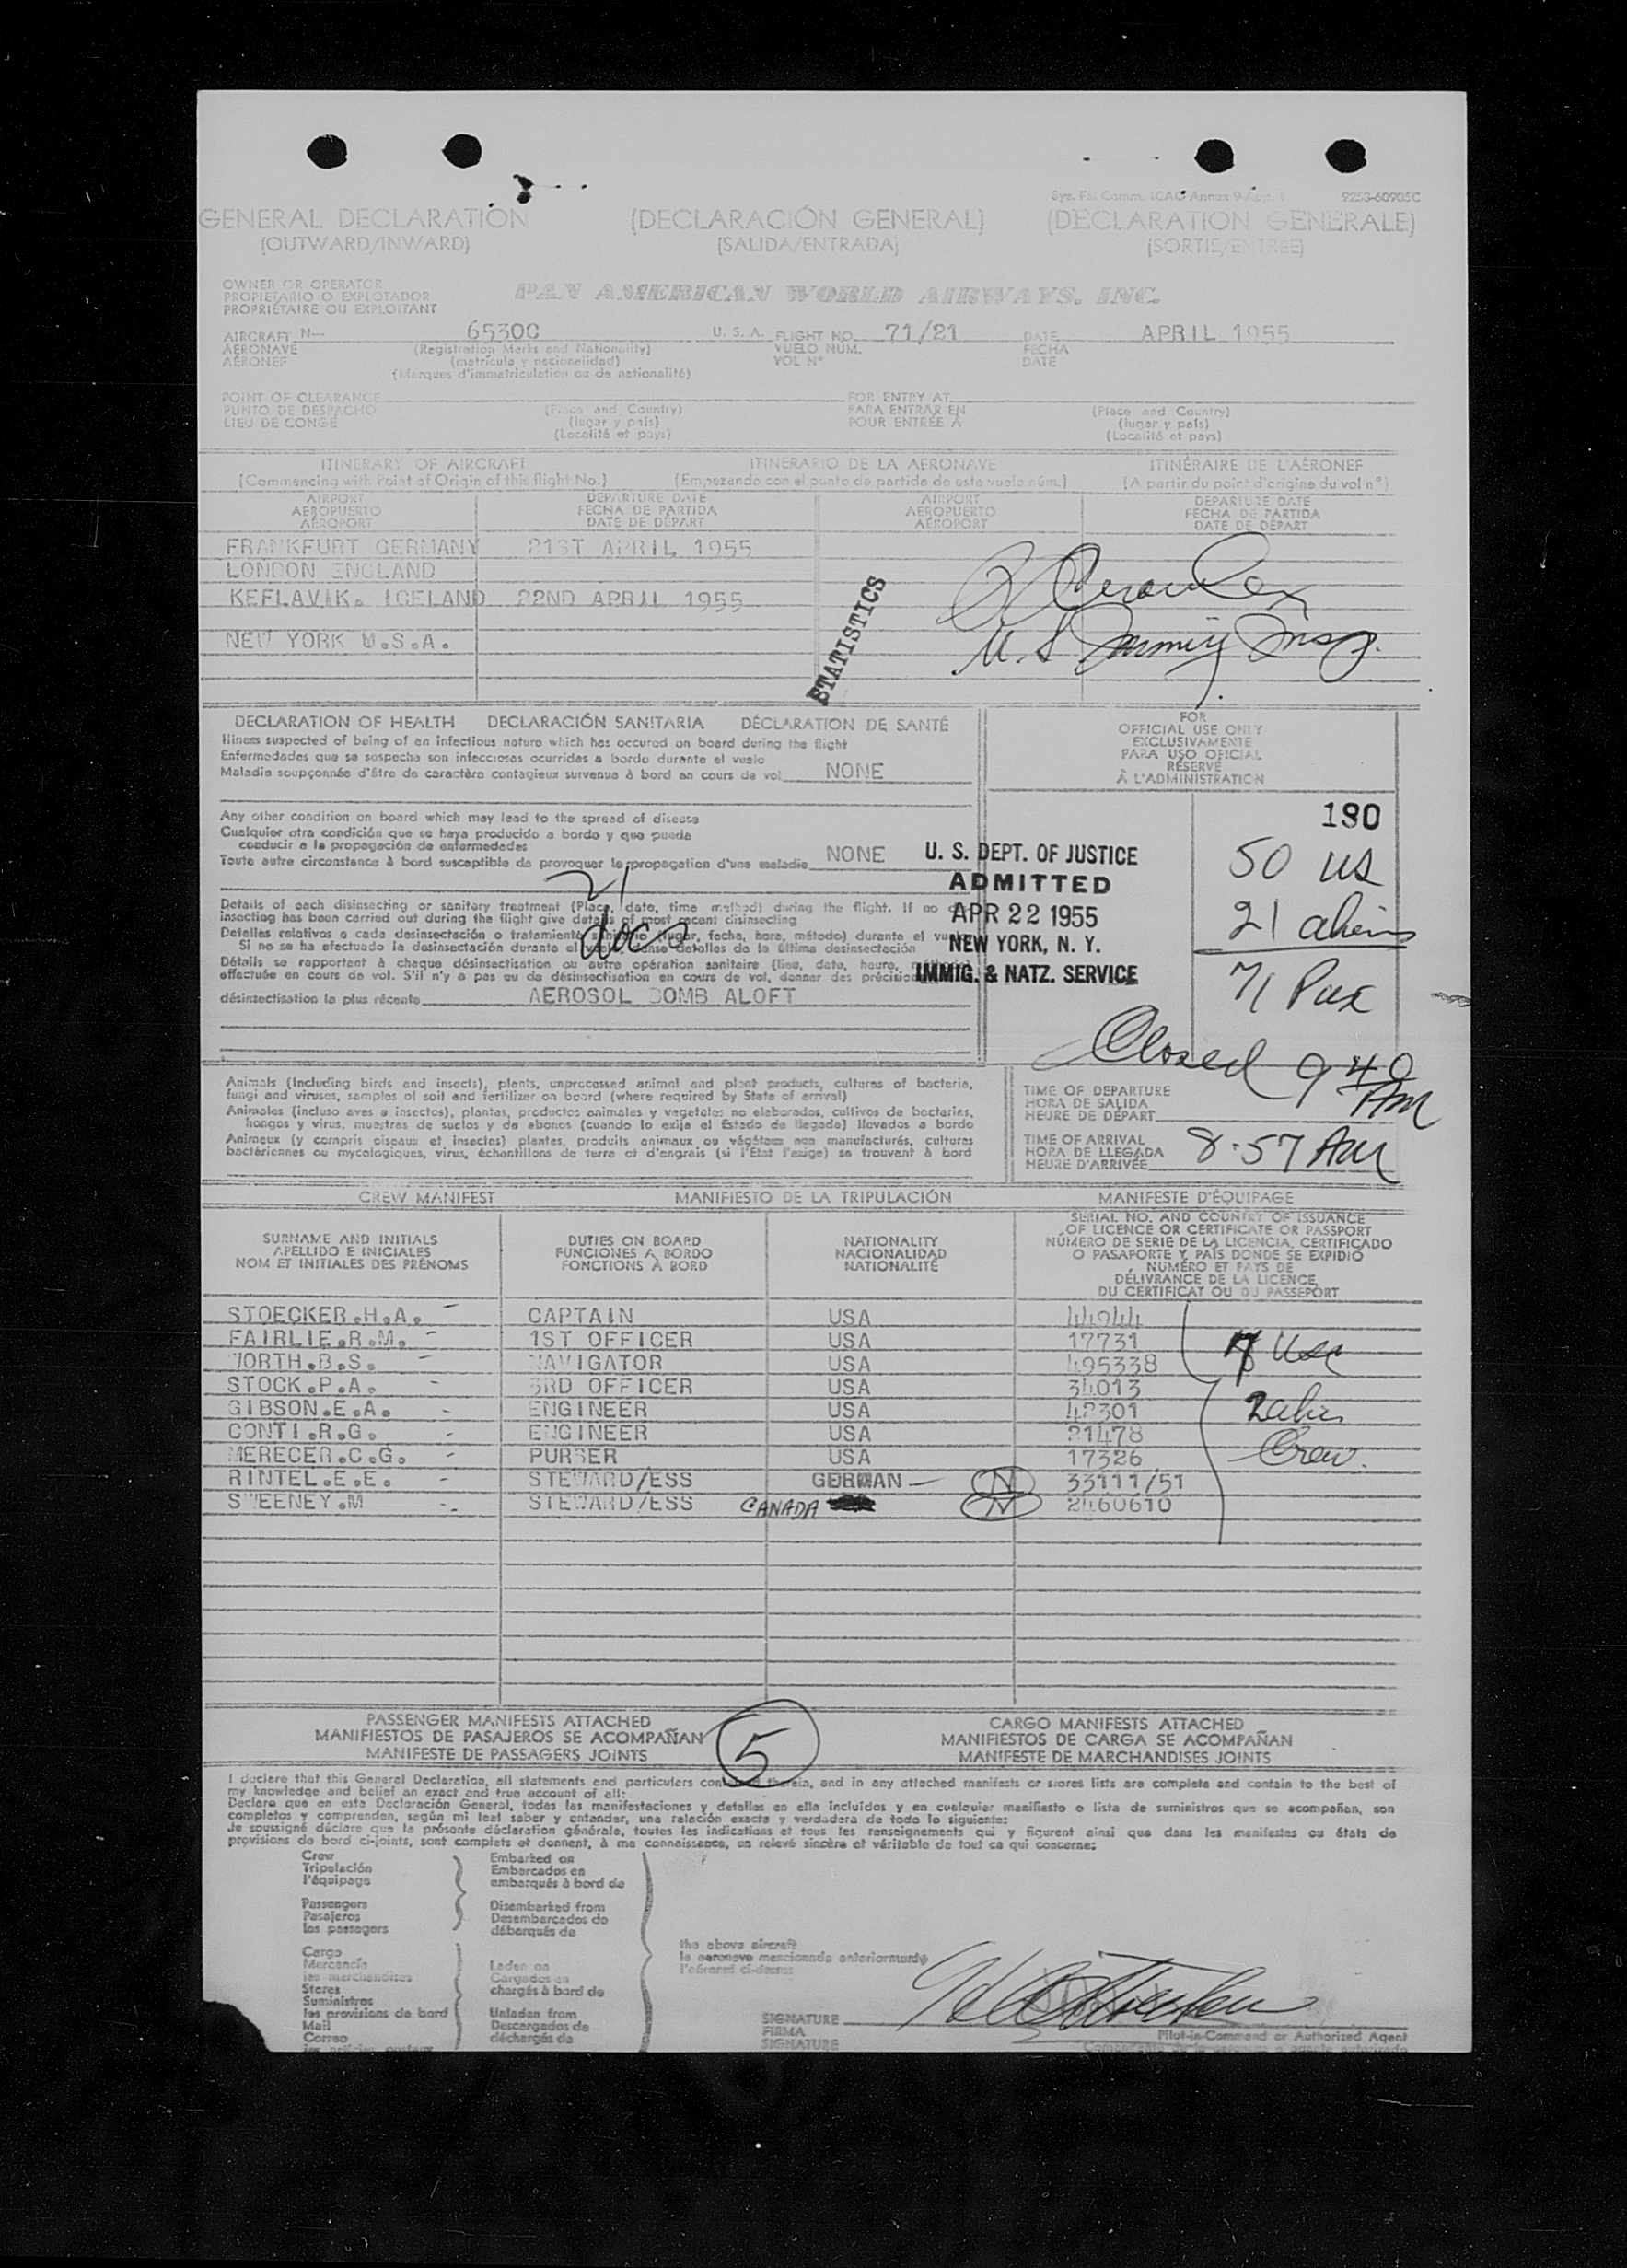 9253-60905C
GENERAL DECLARATION (DECLARACIÓN GENERAL) (DECLARATION GENERALE)
(OUTWARD/INWARD) (SALIDA/ENTRADA) (SORTIE/ENTREE)
OWNER OR OPERATOR
PROPIETARIO O EXPLOTADOR
PROPRIÉTAIRE OU EXPLOITANT
PAN AMERICAN WORLD AIRWAYS, INC.
AIRCRAFT N— 6530C U. S. A. FLIGHT NO. 71/21 DATE APRIL 1955
AERONAVE (Registration Marks and Nationality) VUELO NUM. FECHA
AÉRONEF (matrícula y nacionalidad) VOL N° DATE
(Marques d'immatriculation ou de nationalité)
POINT OF CLEARANCE FOR ENTRY AT
PUNTO DE DESPACHO (Place and Country) PARA ENTRAR EN (Place and Country)
LIEU DE CONGÉ (lugar y país) POUR ENTRÉE À (lugar y país)
(Localité et pays) (Localité et pays)
ITINERARY OF AIRCRAFT ITINERARIO DE LA AERONAVE ITINÉRAIRE DE L'AÉRONEF
(Commencing with Point of Origin of this flight No.) (Empezando con el punto de partida de este vuelo núm.) (A partir du point d'origine du vol n°)
AIRPORT DEPARTURE DATE AIRPORT DEPARTURE DATE
AEROPUERTO FECHA DE PARTIDA AEROPUERTO FECHA DE PARTIDA
AÉROPORT DATE DE DÉPART AÉROPORT DATE DE DÉPART
FRANKFURT GERMANY 21ST APRIL 1955
LONDON ENGLAND
KEFLAVIK. ICELAND 22ND APRIL 1955
NEW YORK U.S.A.
STATISTICS
U.S Immig Insp.
DECLARATION OF HEALTH DECLARACIÓN SANITARIA DÉCLARATION DE SANTÉ
Illness suspected of being of an infectious nature which has occured on board during the flight
Enfermedades que se sospecha son infecciosas ocurridas a bordo durante el vuelo
Maladie soupçonnée d'être de caractère contagieux survenue à bord en cours de vol NONE
FOR
OFFICIAL USE ONLY
EXCLUSIVAMENTE
PARA USO OFICIAL
RÉSERVÉ
À L'ADMINISTRATION
Any other condition on board which may lead to the spread of disease
Cualquier otra condición que se haya producido a bordo y que pueda
conducir a la propagación de enfermedades
Toute autre circonstance à bord susceptible de provoquer la propagation d'une maladie NONE
190
50 US
21 aliens
71 Pax
U. S. DEPT. OF JUSTICE
ADMITTED
APR 22 1955
NEW YORK, N. Y.
IMMIG. & NATZ. SERVICE
21
docs
Details of each disinsecting or sanitary treatment (Place, date, time method) during the flight. If no
insecting has been carried out during the flight give details of most recent disinsecting
Detalles relativos a cada desinsectación o tratamiento fecha, hora, método) durante el vuelo
Si no se ha efectuado la desinsectación durante el detalles de la última desinsectación
Détails se rapportant à chaque désinsectisation ou autre opération sanitaire (lieu, date, heure,
effectuée en cours de vol. S'il n'y a pas eu de désinsectisation en cours de vol, donner des
désinsectisation la plus récente AEROSOL BOMB ALOFT
Closed 9 40 AM
Animals (Including birds and insects), plants, unprocessed animal and plant products, cultures of bacteria,
fungi and viruses, samples of soil and fertilizer on board (where required by State of arrival)
Animales (incluso aves e insectos), plantas, productos animales y vegetales no elaborados, cultivos de bacterias,
hongos y virus, muestras de suelos y de abonos (cuando lo exija el Estado de llegada) llevados a bordo
Animaux (y compris oiseaux et insectes) plantes, produits animaux ou végétaux non manufacturés, cultures
bactériennes ou mycologiques, virus, échantillons de terre et d'engrais (si l'État l'exige) se trouvant à bord
TIME OF DEPARTURE
HORA DE SALIDA
HEURE DE DÉPART
TIME OF ARRIVAL
HORA DE LLEGADA
HEURE D'ARRIVÉE 8·57 AM
CREW MANIFEST MANIFIESTO DE LA TRIPULACIÓN MANIFESTE D'ÉQUIPAGE
SURNAME AND INITIALS
APELLIDO E INICIALES
NOM ET INITIALES DES PRÉNOMS
DUTIES ON BOARD
FUNCIONES A BORDO
FONCTIONS À BORD
NATIONALITY
NACIONALIDAD
NATIONALITÉ
SERIAL NO. AND COUNTRY OF ISSUANCE
OF LICENCE OR CERTIFICATE OR PASSPORT
NÚMERO DE SERIE DE LA LICENCIA, CERTIFICADO
O PASAPORTE Y PAÍS DONDE SE EXPIDIÓ
NUMÉRO ET PAYS DE
DÉLIVRANCE DE LA LICENCE,
DU CERTIFICAT OU DU PASSEPORT
STOECKER.H.A. CAPTAIN USA 44944
FAIRLIE.R.M. 1ST OFFICER USA 17731
WORTH.B.S. NAVIGATOR USA 495338
STOCK.P.A. 3RD OFFICER USA 34013
GIBSON.E.A. ENGINEER USA 42301
CONTI.R.G. ENGINEER USA 21478
MERECER.C.G. PURSER USA 17326
RINTEL.E.E. STEWARD/ESS GERMAN N 33111/51
SWEENEY.M STEWARD/ESS CANADA N 2460610
7 Usc
2 alien
Crew.
PASSENGER MANIFESTS ATTACHED CARGO MANIFESTS ATTACHED
MANIFIESTOS DE PASAJEROS SE ACOMPAÑAN 5 MANIFIESTOS DE CARGA SE ACOMPAÑAN
MANIFESTE DE PASSAGERS JOINTS MANIFESTE DE MARCHANDISES JOINTS
I declare that this General Declaration, all statements and particulars contained therein, and in any attached manifests or stores lists are complete and contain to the best of
my knowledge and belief an exact and true account of all:
Declaro que en esta Declaración General, todas las manifestaciones y detalles en ella incluidos y en cualquier manifiesto o lista de suministros que se acompañan, son
completos y comprenden, según mi leal saber y entender, una relación exacta y verdadera de todo lo siguiente:
Je soussigné déclare que la présente déclaration générale, toutes les indications et tous les renseignements qui y figurent ainsi que dans les manifestes ou états de
provisions de bord ci-joints, sont complets et donnent, à ma connaissance, un relevé sincère et véritable de tout ce qui concerne:
Crew
Tripulación
l'équipage
Passengers
Pasajeros
les passagers
Cargo
Mercancía
les marchandises
Stores
Suministros
les provisions de bord
Mail
Correo
Embarked on
Embarcados en
embarqués à bord de
Disembarked from
Desembarcados de
débarqués de
Laden on
Cargados en
chargés à bord de
Unladen from
Descargados de
déchargés de
the above aircraft
la aeronave mencionada anteriormente
l'aéronef ci-dessus
SIGNATURE
FIRMA
SIGNATURE
Pilot-in-Command or Authorized Agent